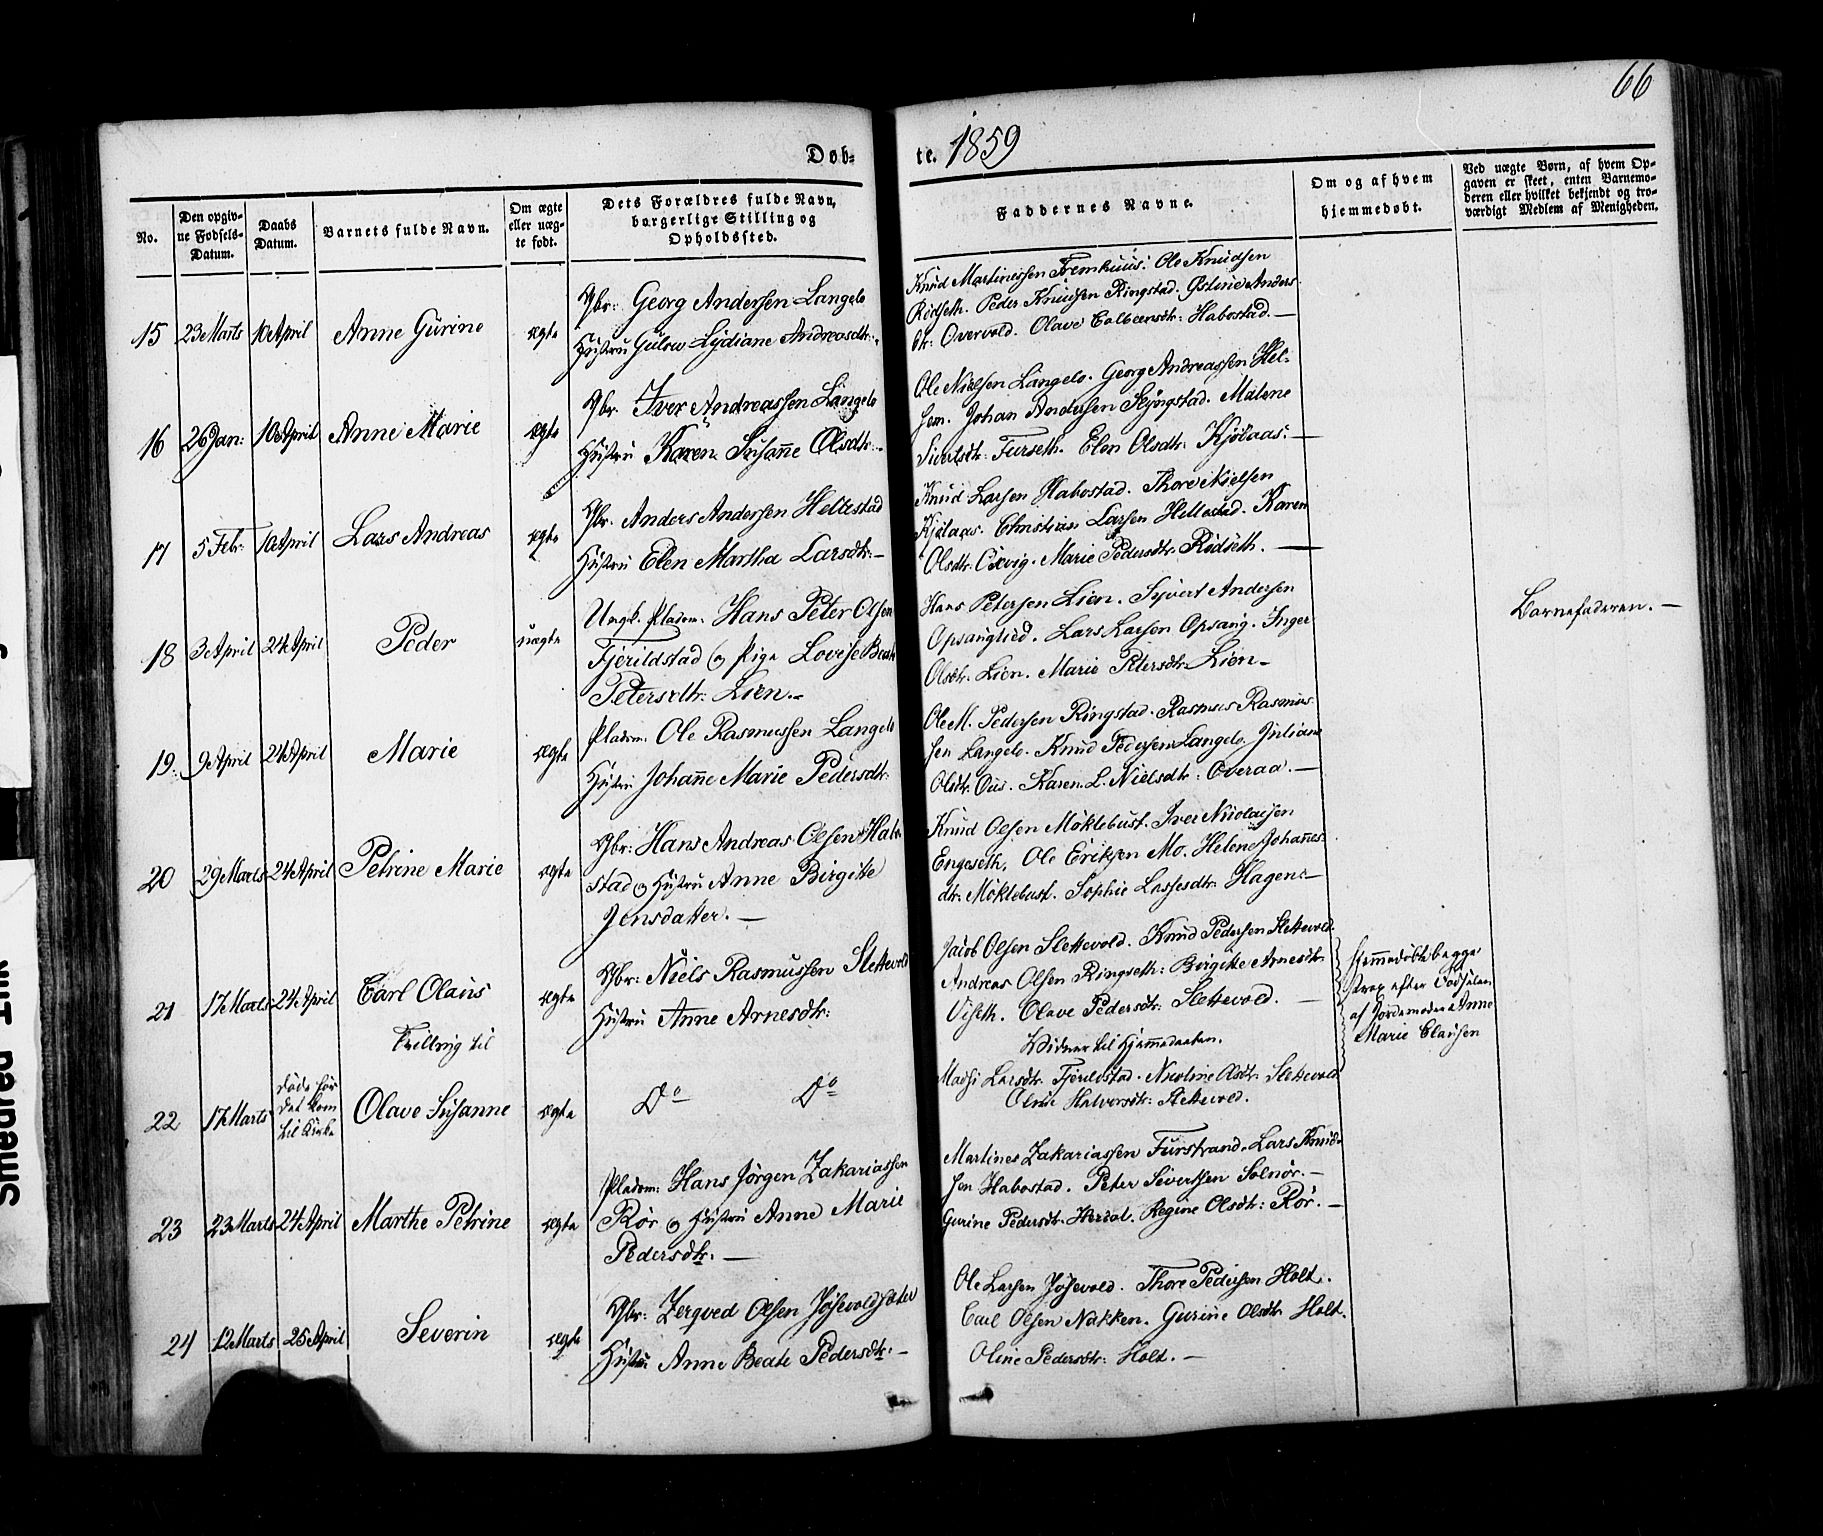 66
Døb-
te. 1859
No.
Den opgiv-
ne Fødsels-
Datum.
Daabs
Datum.
Barnets fulde Navn.
Om ægte
eller uæg-
te født.
Dets Forældres fulde Navn,
borgerlige Stilling og
Opholdssted.
Faddernes Navne.
Om og af hvem
hjemmedøbt.
Ved uægte Børn, af hvem Op-
gaven er skeet, enten Barnemo-
deren eller hvilket bekjendt og tro-
værdigt Medlem af Menigheden.
15 23 Marts 10 April Anne Gurine ægte
Gbr: Georg Andersen Langelo
Hustru Lydiane Andreasdtr:
Knud Martinussen Fremhuus. Ole Knudsen
Rødseth. Peder Knudsen Ringstad. Anders
dtr: Overvold. Olave dtr: Habostad.
16 26 Jan: 10 April Anne Marie ægte
Gbr. Iver Andreassen Langelo
Hustru Karen Susanne Olsdtr:
Ole Nielsen Langelo. Georg Andreassen Hel-
sem. Johan Andersen Skjøngstad. Malene
Sivertsdtr: Furseth. Elen Olsdtr: Kjølaas.
17 5 Febr: 10 April Lars Andreas ægte
Gbr. Anders Andersen Hellestad
Hustru Elen Martha Larsdtr:
Knud Larsen Habostad. Thore Nielsen
Kjølaas. Christian Larsen Hellestad. Karen
Olsdtr. Marie Pedersdtr. Rødseth.
18 3 April 24 April Peder uægte
Ungk. Pladsm. Hans Peter Olsen
Fjerildstad og Pige Lovise Beate
Petersdtr: Lien.
Hans Petersen Lien. Syvert Andersen
Opsanglied. Lars Larsen Opsang. Inger
Olsdtr. Lien. Marie Petersdtr. Lien
Barnefaderen.
19. 9 April 24 April Marie ægte
Pladsm: Ole Rasmussen Langelo
Hustru Johanne Marie Pedersdtr.
Ole M. Pedersen Ringstad. Rasmus Rasmus-
sen Langelo. Knud Pedersen Langelo. Juliane
Olsdtr. Ous. Karen L. Nielsdtr: Overaa.
20 29 Marts 24 April Petrine Marie ægte
Gbr: Hans Andreas Olsen Habo-
stad og Hustru Anne Birgitte
Jensdatter.
Knud Olsen Møklebust. Iver Nicolaysen
Engeseth. Ole Eriksen Mo. Helene Johannes-
dtr: Møklebust. Sophie Lassesdtr: Hagen.
21 17 Marts 24 April Carl Olaus ægte
Tvilling til
Gbr: Niels Rasmussen Slettevold
Hustru Anne Arnesdtr:
Jacob Olsen Slettevold. Knud Pedersen Slettevold.
Andreas Olsen Ringseth. Birgitte Arnesdtr.
Viseth. Olave Pedersdtr: Slettevold.
Vidner til Hjemmedaaben.
Hjemmedøbte begge
strax efter Fødselen
af Jordemoder Anne
Marie Clausen
22 17 Marts
døde før
det kom
til Kirke
Olave Susanne ægte
Do Do
Larsdtr. Fjerildstad. Nicoline Olsdtr. Slettevold
Oline Halvorsdtr: Slettevold.
23 23 Marts 24 April Marthe Petrine ægte
Pladsm: Hans Jørgen Zakariassen
Rør og Hustru Anne Marie
Pedersdtr:
Martines Zakariassen Furstrand. Lars Knud-
sen Habostad. Peter Sivertsen Solnør.
Gurine Pedersdtr. Regine Olsdtr: Rør.
24 12 Marts 25 April Severin ægte
Gbr: Olsen Jøsevoldsæter
Hustru Anne Beate Pedersdtr:
Ole Larsen Jøsevold. Thore Pedersen Holt.
Carl Olsen Nakken. Gurine Olsdtr Holt.
Oline Pedersdtr: Holt.